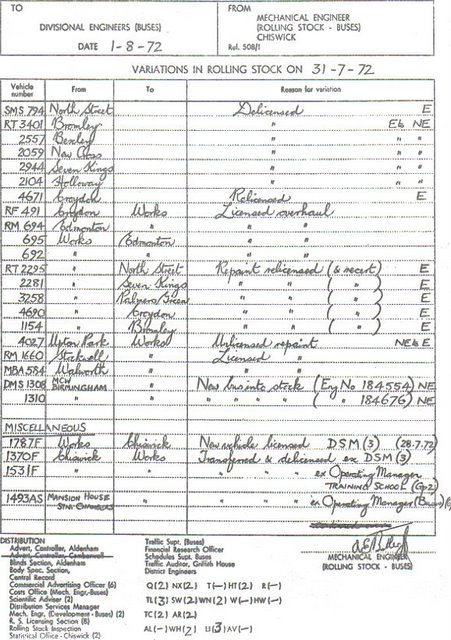 TO
DIVISIONAL ENGINEERS (BUSES)
DATE 1-8-72
FROM
MECHANICAL ENGINEER
(ROLLING STOCK - BUSES)
CHISWICK
Ref. 508/1
VARIATIONS IN ROLLING STOCK ON 31-7-72
Vehicle number From To Reason for variation
SMS 794 North Street Delicensed E
RT 3401 Bromley " E6 NE
2557 Bexley " " "
2059 New Cross " " "
2944 Seven Kings " " "
2104 Holloway " " "
4671 Croydon Relicensed E
RF 491 Croydon Works Licensed overhaul
RM 694 Edmonton " " "
695 Works Edmonton " "
692 " " " "
RT 2295 " North Street Repaint relicensed (& recert) E
2281 " Seven Kings " " ( " ) E
3258 " Palmers Green " " ( " ) E
4690 " Croydon " " ( " ) E
1154 " Bromley " " ( " ) E
4027 Upton Park Works Unlicensed repaint NE6 E
RM 1660 Stockwell " Licensed "
MBA 584 Walworth " " "
DMS 1308 MCW BIRMINGHAM " New bus into stock (Eng No 184554) NE
1310 " " " " " ( " 184676) NE
MISCELLANEOUS
1787F Works Chiswick New vehicle licensed DSM (3) (28.7.72)
1370F Chiswick Works Transferred & delicensed ex DSM (3)
1531F " " " " " ex Operating Manager
TRAINING SCHOOL (Gp2)
1493AS MANSION HOUSE " " " " ex Operating Manager
MECHANICAL ENGINEER
(ROLLING STOCK - BUSES)
DISTRIBUTION
Advert. Controller, Aldenham
Advert. Controller, Camberwell
Blinds Section, Aldenham
Body Spec. Section,
Central Record
Commercial Advertising Officer (6)
Costs Office (Mech. Engr.-Buses)
Scientific Adviser (2)
Distribution Services Manager
Mech. Engr, (Development - Buses) (2)
R. S. Licensing Section (8)
Rolling Stock Inspection
Statistical Office - Chiswick (2)
Traffic Supt. (Buses)
Financial Research Officer
Schedules Supt. Buses
Traffic Auditor, Griffith House
District Engineers
Q(2) NX(2) T(—) HT(2) R(—)
TL(3) SW(2) WN(2) W(—) HW(—)
TC(2) AR(2)
AL(—) WH(2) LI(3) AV(—)